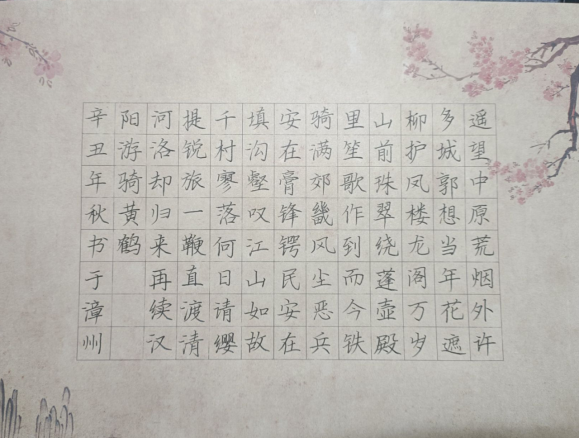 遥望中原荒烟外许
多城郭想当年花遮
柳护凤楼龙阁万岁
山前珠翠绕蓬壶殿
里笙歌作到而今铁
骑满郊畿风尘恶兵
安在膏锋锷民安在
填沟壑叹江山如故
千村寥落何日请缨
提锐旅一鞭直渡清
河洛却归来再续汉
阳游骑黄鹤
辛丑年秋书于漳州